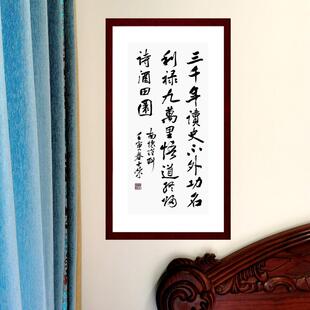 三千年讀史不外功名
利祿九萬里悟道終歸
詩酒田園
南懷瑾